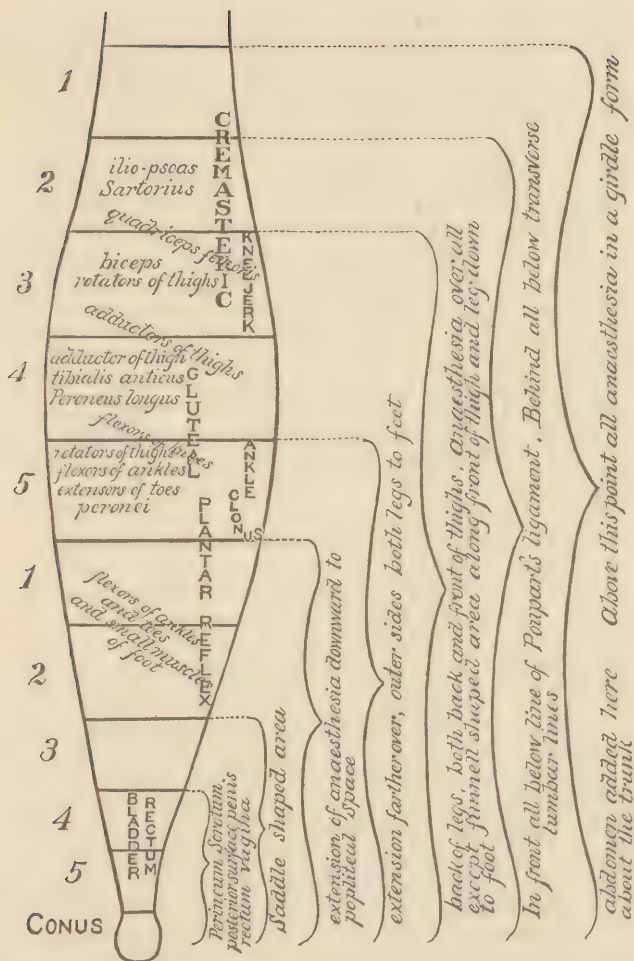 1
2
3
4
5
1
2
3
4
5
CONUS
CREMASTERIC
ilio-psoas
Sartorius
quadriceps femoris
KNEE JERK
biceps
rotators of thighs
adductors of thighs
adductor of thigh
tibialis anticus
Peroneus longus
GLUTEAL
flexors of knees
rotators of thighs
flexors of ankles
extensors of toes
peronei
ANKLE CLONUS
PLANTAR REFLEX
flexors of ankles
and toes
and small muscles
of foot
BLADDER
RECTUM
Perineum Scrotum
posterior surface penis
rectum vagina
Saddle shaped area
extension of anaesthesia downward to
popliteal space
extension farther over, outer sides both legs to feet
back of legs, both back and front of thighs, anaesthesia over all
except funnell shaped area along front of thigh and leg down
to foot
In front all below line of Pouparts ligament. Behind all below transverse
lumbar lines
abdomen added here Above this point all anaesthesia in a girdle form
about the trunk